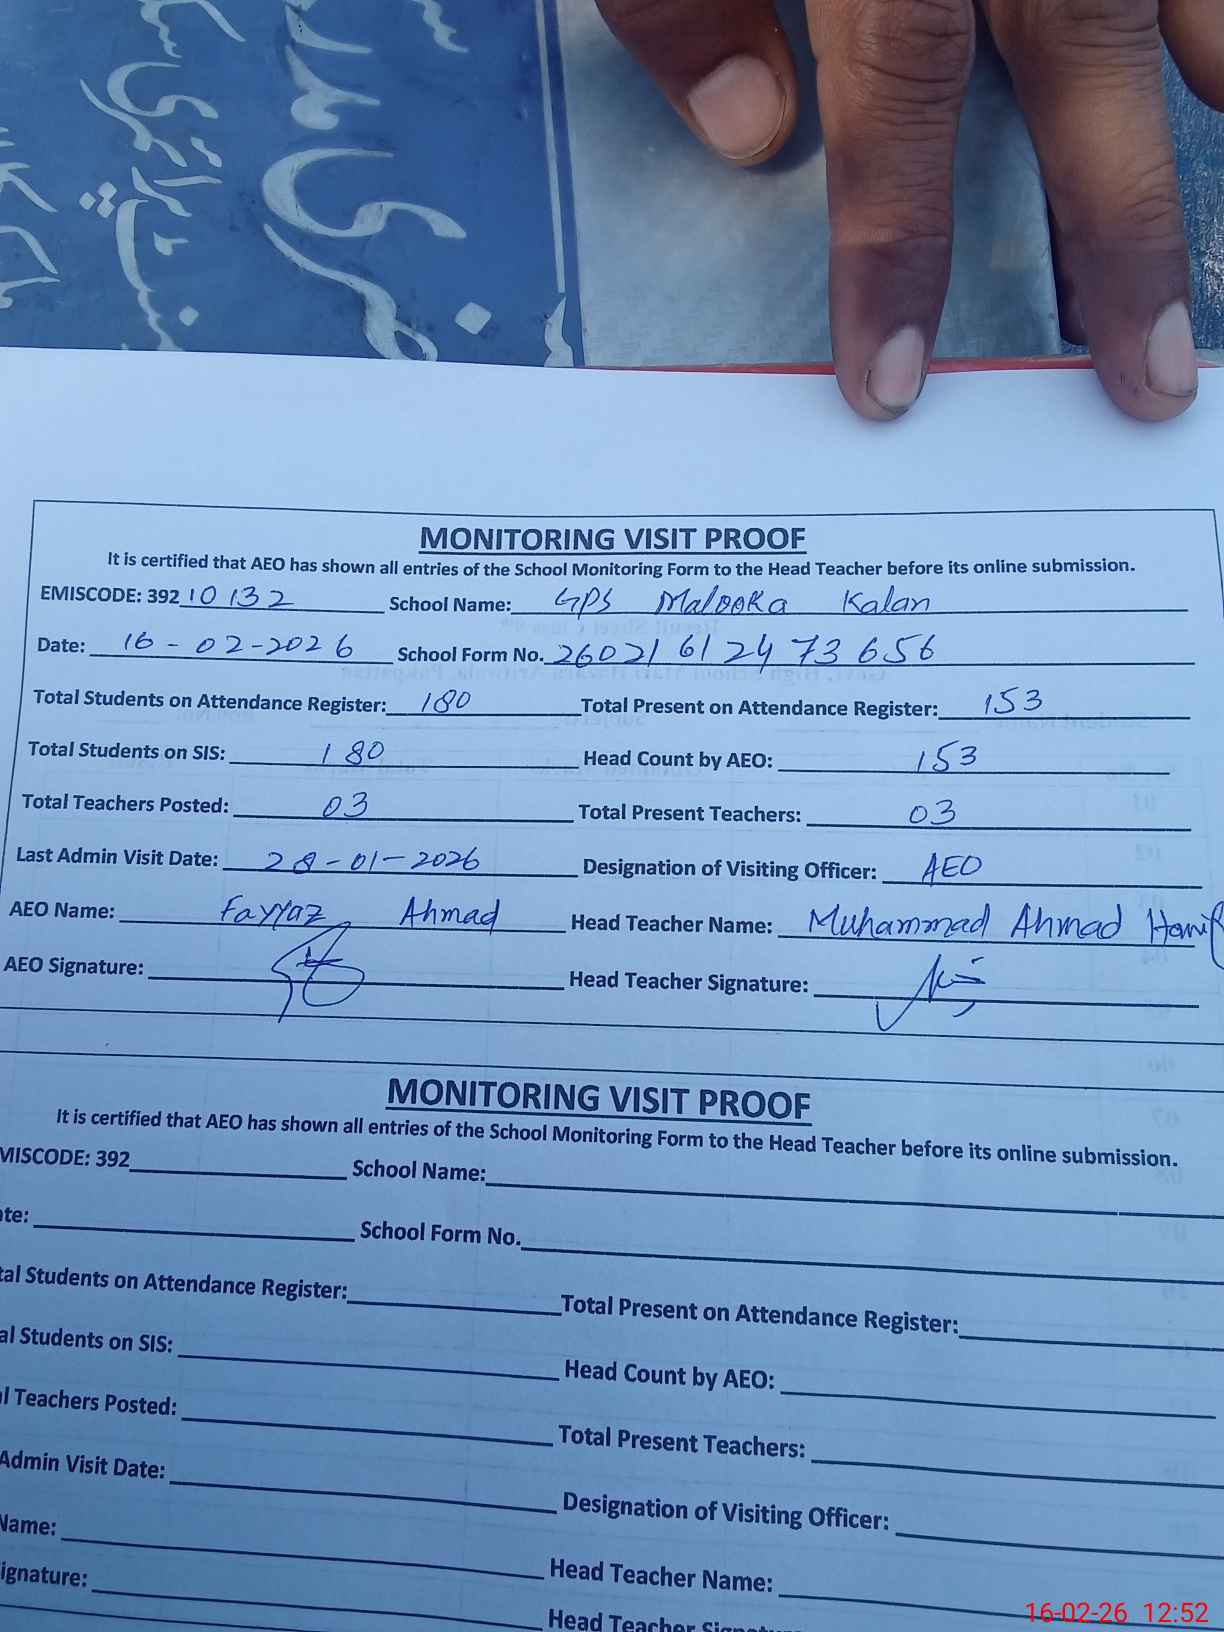 MONITORING VISIT PROOF
It is certified that AEO has shown all entries of the School Monitoring Form to the Head Teacher before its online submission.
EMISCODE: 392 10132 School Name: GPS Malooka Kalan
Date: 16-02-2026 School Form No. 26021612473656
Total Students on Attendance Register: 180 Total Present on Attendance Register: 153
Total Students on SIS: 180 Head Count by AEO: 153
Total Teachers Posted: 03 Total Present Teachers: 03
Last Admin Visit Date: 28-01-2026 Designation of Visiting Officer: AEO
AEO Name: Fayyaz Ahmad Head Teacher Name: Muhammad Ahmad Hanif
AEO Signature: Head Teacher Signature:
MONITORING VISIT PROOF
It is certified that AEO has shown all entries of the School Monitoring Form to the Head Teacher before its online submission.
MISCODE: 392 School Name:
ate: School Form No.
tal Students on Attendance Register: Total Present on Attendance Register:
al Students on SIS: Head Count by AEO:
l Teachers Posted: Total Present Teachers:
Admin Visit Date: Designation of Visiting Officer:
Name: Head Teacher Name:
ignature: Head Teacher
16-02-26 12:52